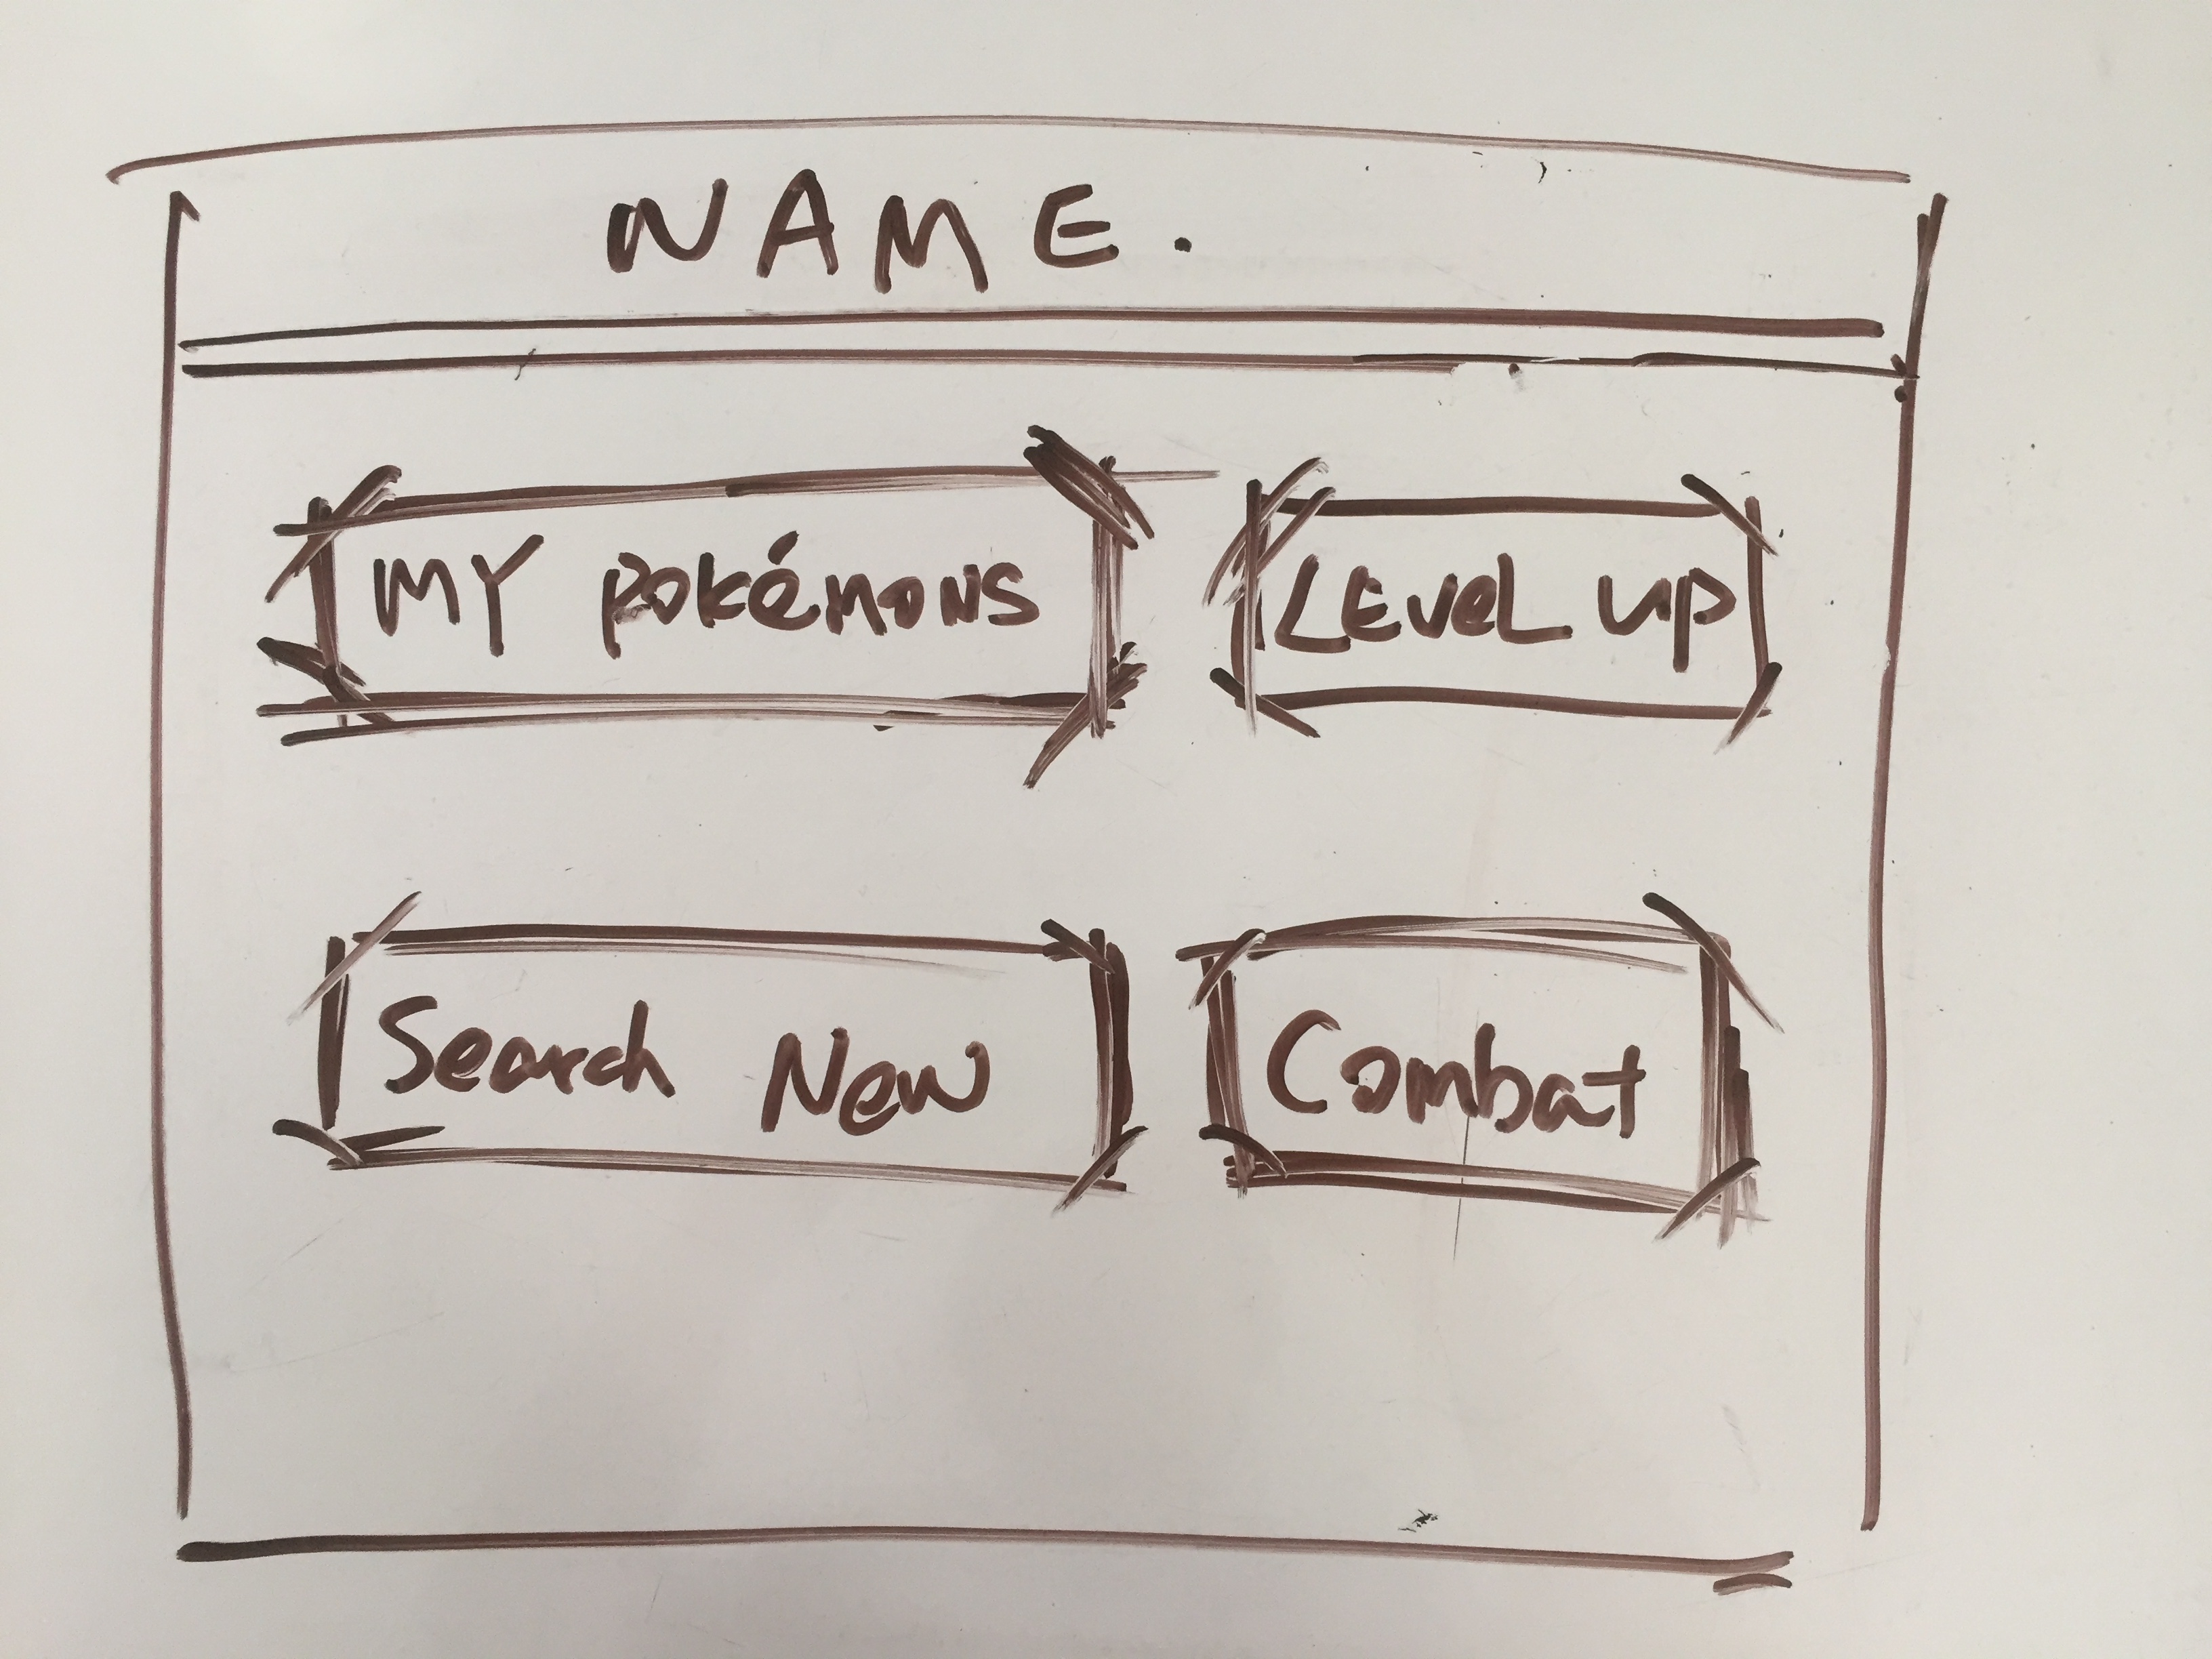 NAME.
MY POKéMONS
LEVEL UP
Search New
Combat